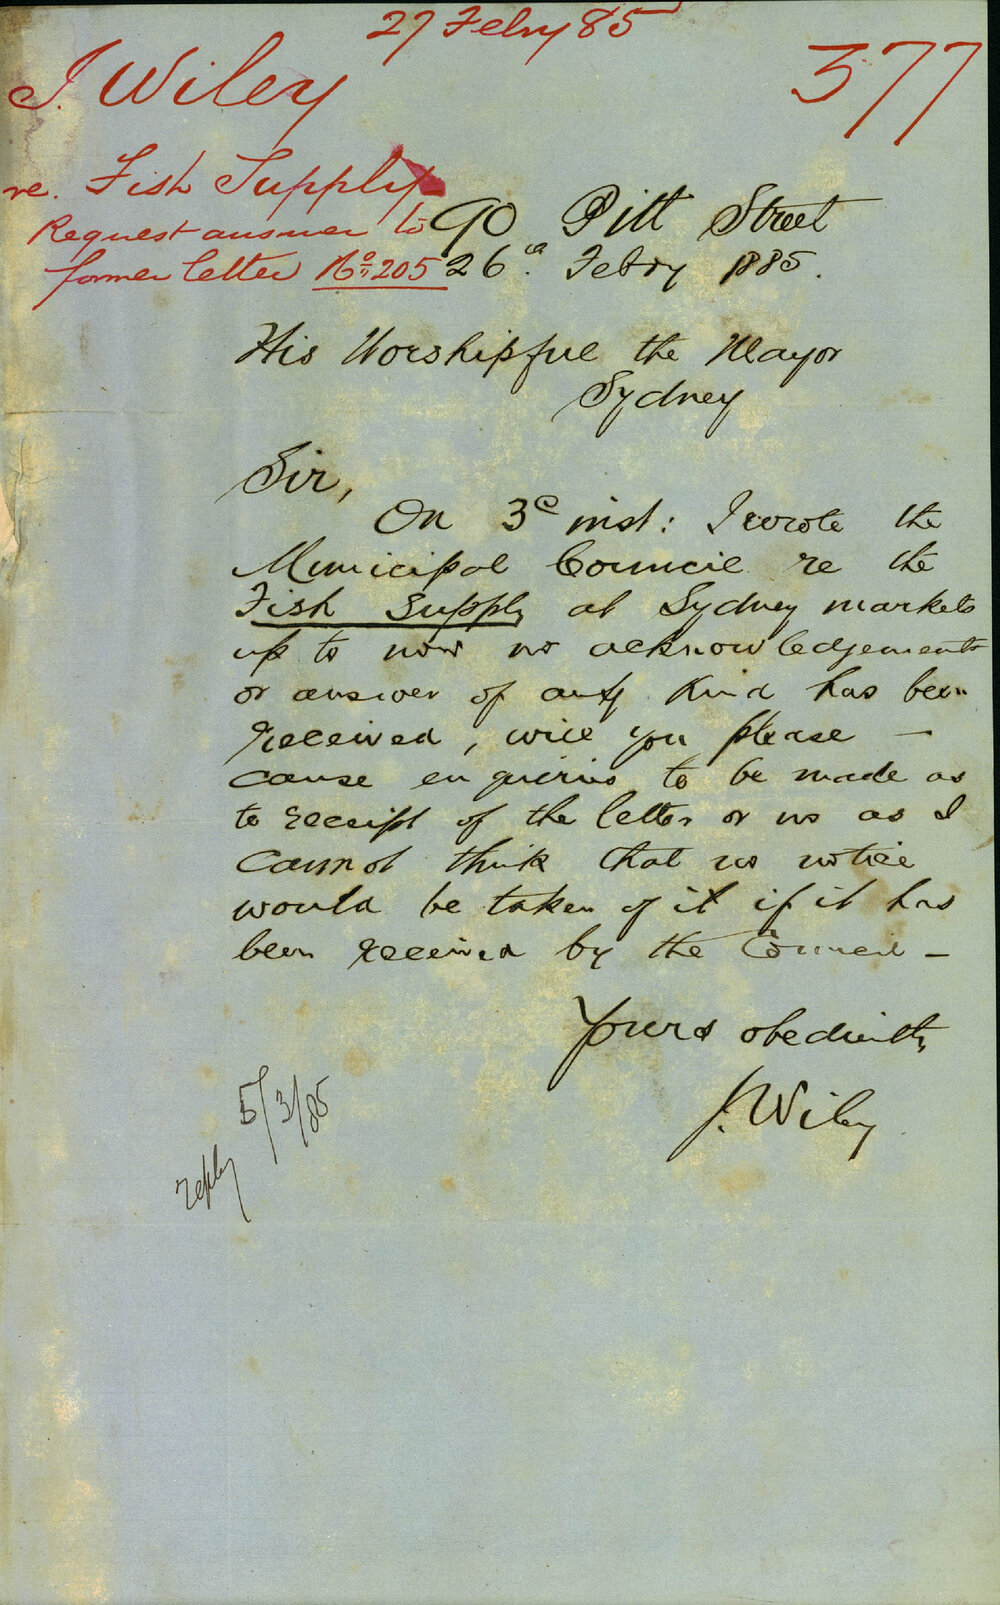 27 Febry 85
J. Wiley
377
re. Fish Supply
Request answer to
former letter No. 205
90 Pitt Street
26th. Febry 1885.
His Worshipful the Mayor
Sydney
Sir,
On 3d inst: I wrote the
Municipal Council re the
Fish Supply at Sydney markets
up to now no acknowledgements
or answer of any kind has been
received, will you please —
cause enquiries to be made as
to receipt of the letter or no as I
cannot think that no notice
would be taken of it if it has
been received by the Council —
Yours obediently,
J. Wiley
5/3/85
reply